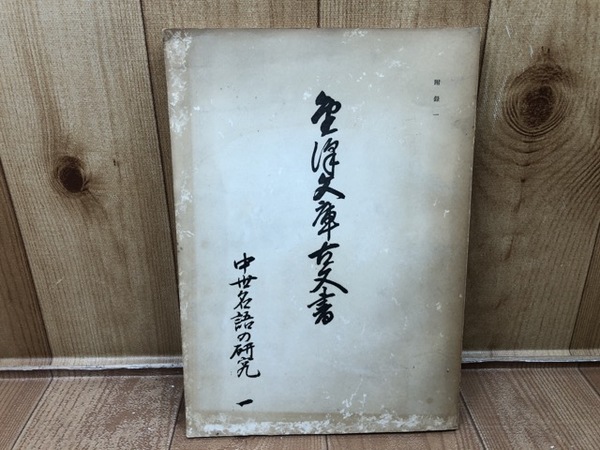 附録一
金澤文庫古文書
中世名語の研究 一